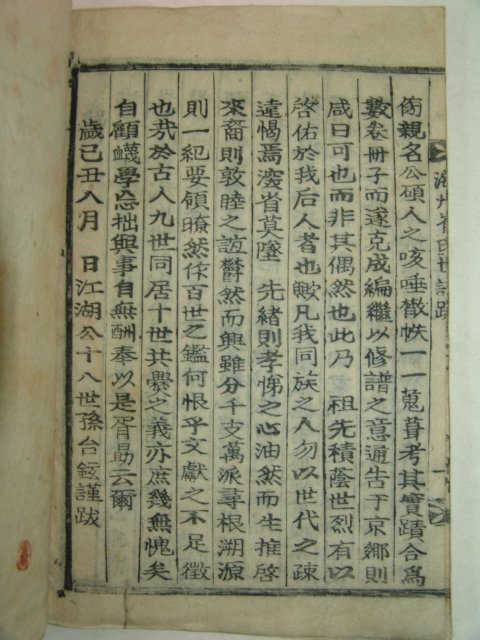 海州崔氏世譜跋
傍親名公碩人之咳唾散帙一一蒐葺考其實蹟合爲
數卷冊子而遂克成編繼以修譜之意通告于京鄉則
咸曰可也而非其偶然也此乃 祖先積蔭世烈有以
啓佑於我后人者也歟凡我同族之人勿以世代之疎
遠愒焉深省莫墜 先緒則孝悌之心油然而生推啓
來裔則敦睦之誼欝然而興雖分千支萬派尋根溯源
則一紀要領暸然作百世之鑑何恨乎文獻之不足徵
也㦲於古人九世同居十世共爨之義亦庶幾無愧矣
自顧蔑學忘拙與事自無酬奉以是胥勗云爾
歲己丑八月 日江湖公十八世孫台鎮謹跋